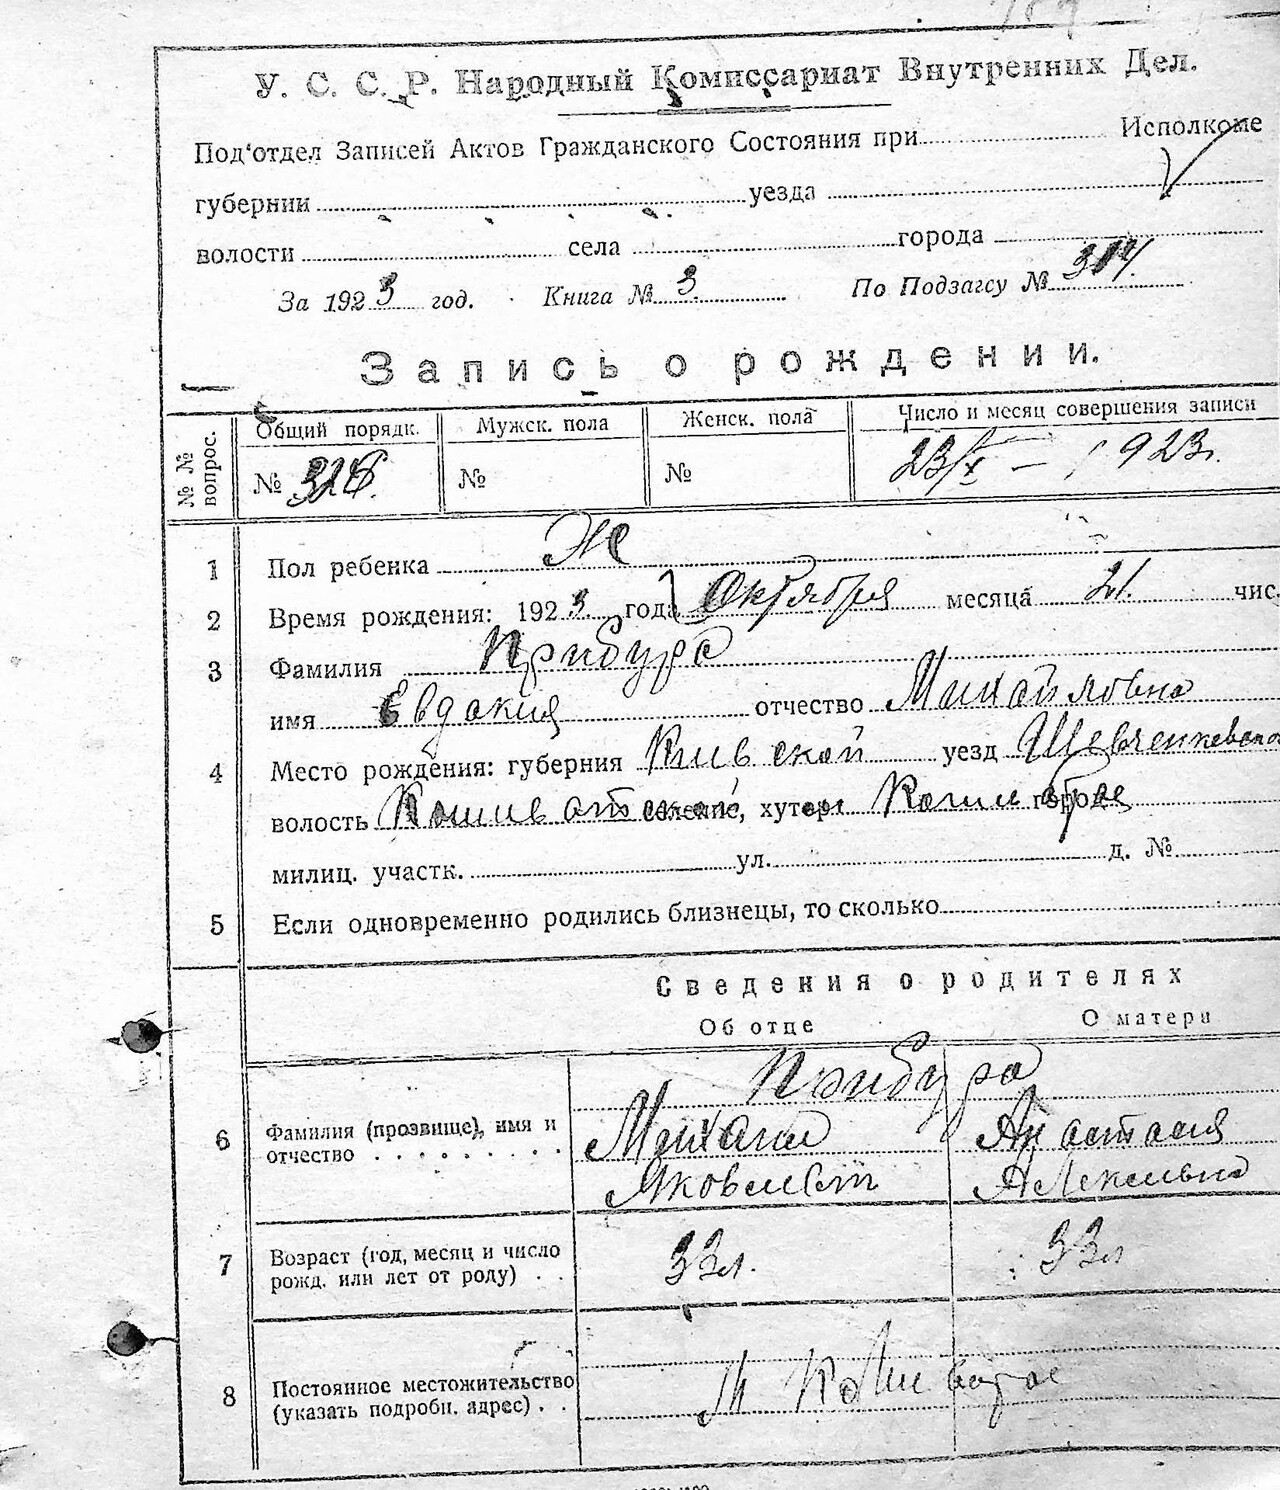 У. С. С. Р. Народный Комиссариат Внутренних Дел.
Под'отдел Записей Актов Гражданского Состояния при Исполкоме
губернии уезда
волости села города
За 1923 год. Книга № 3. По Подзагсу № 314.
Запись о рождении.
№ № вопрос. Общий порядк. Мужск. пола Женск. пола Число и месяц совершения записи
№ 326. № № 23/X – 1923г.
1 Пол ребенка Ж
2 Время рождения: 1923 года Октября месяца 21. чис.
3 Фамилия Прибура
имя Евдокия отчество Михайловна
4 Место рождения: губерния Киевской уезд Шевченковского
волость Кошиватской селение, хутор города
милиц. участк. ул. д. №
5 Если одновременно родились близнецы, то сколько
Сведения о родителях
Об отце О матери
Прибура
6 Фамилия (прозвище), имя и отчество Михаил Анастасия
Яковлевич Алексеевна
7 Возраст (год, месяц и число рожд. или лет от роду) 33л. 33л
8 Постоянное местожительство (указать подробн. адрес) М Кошеватое